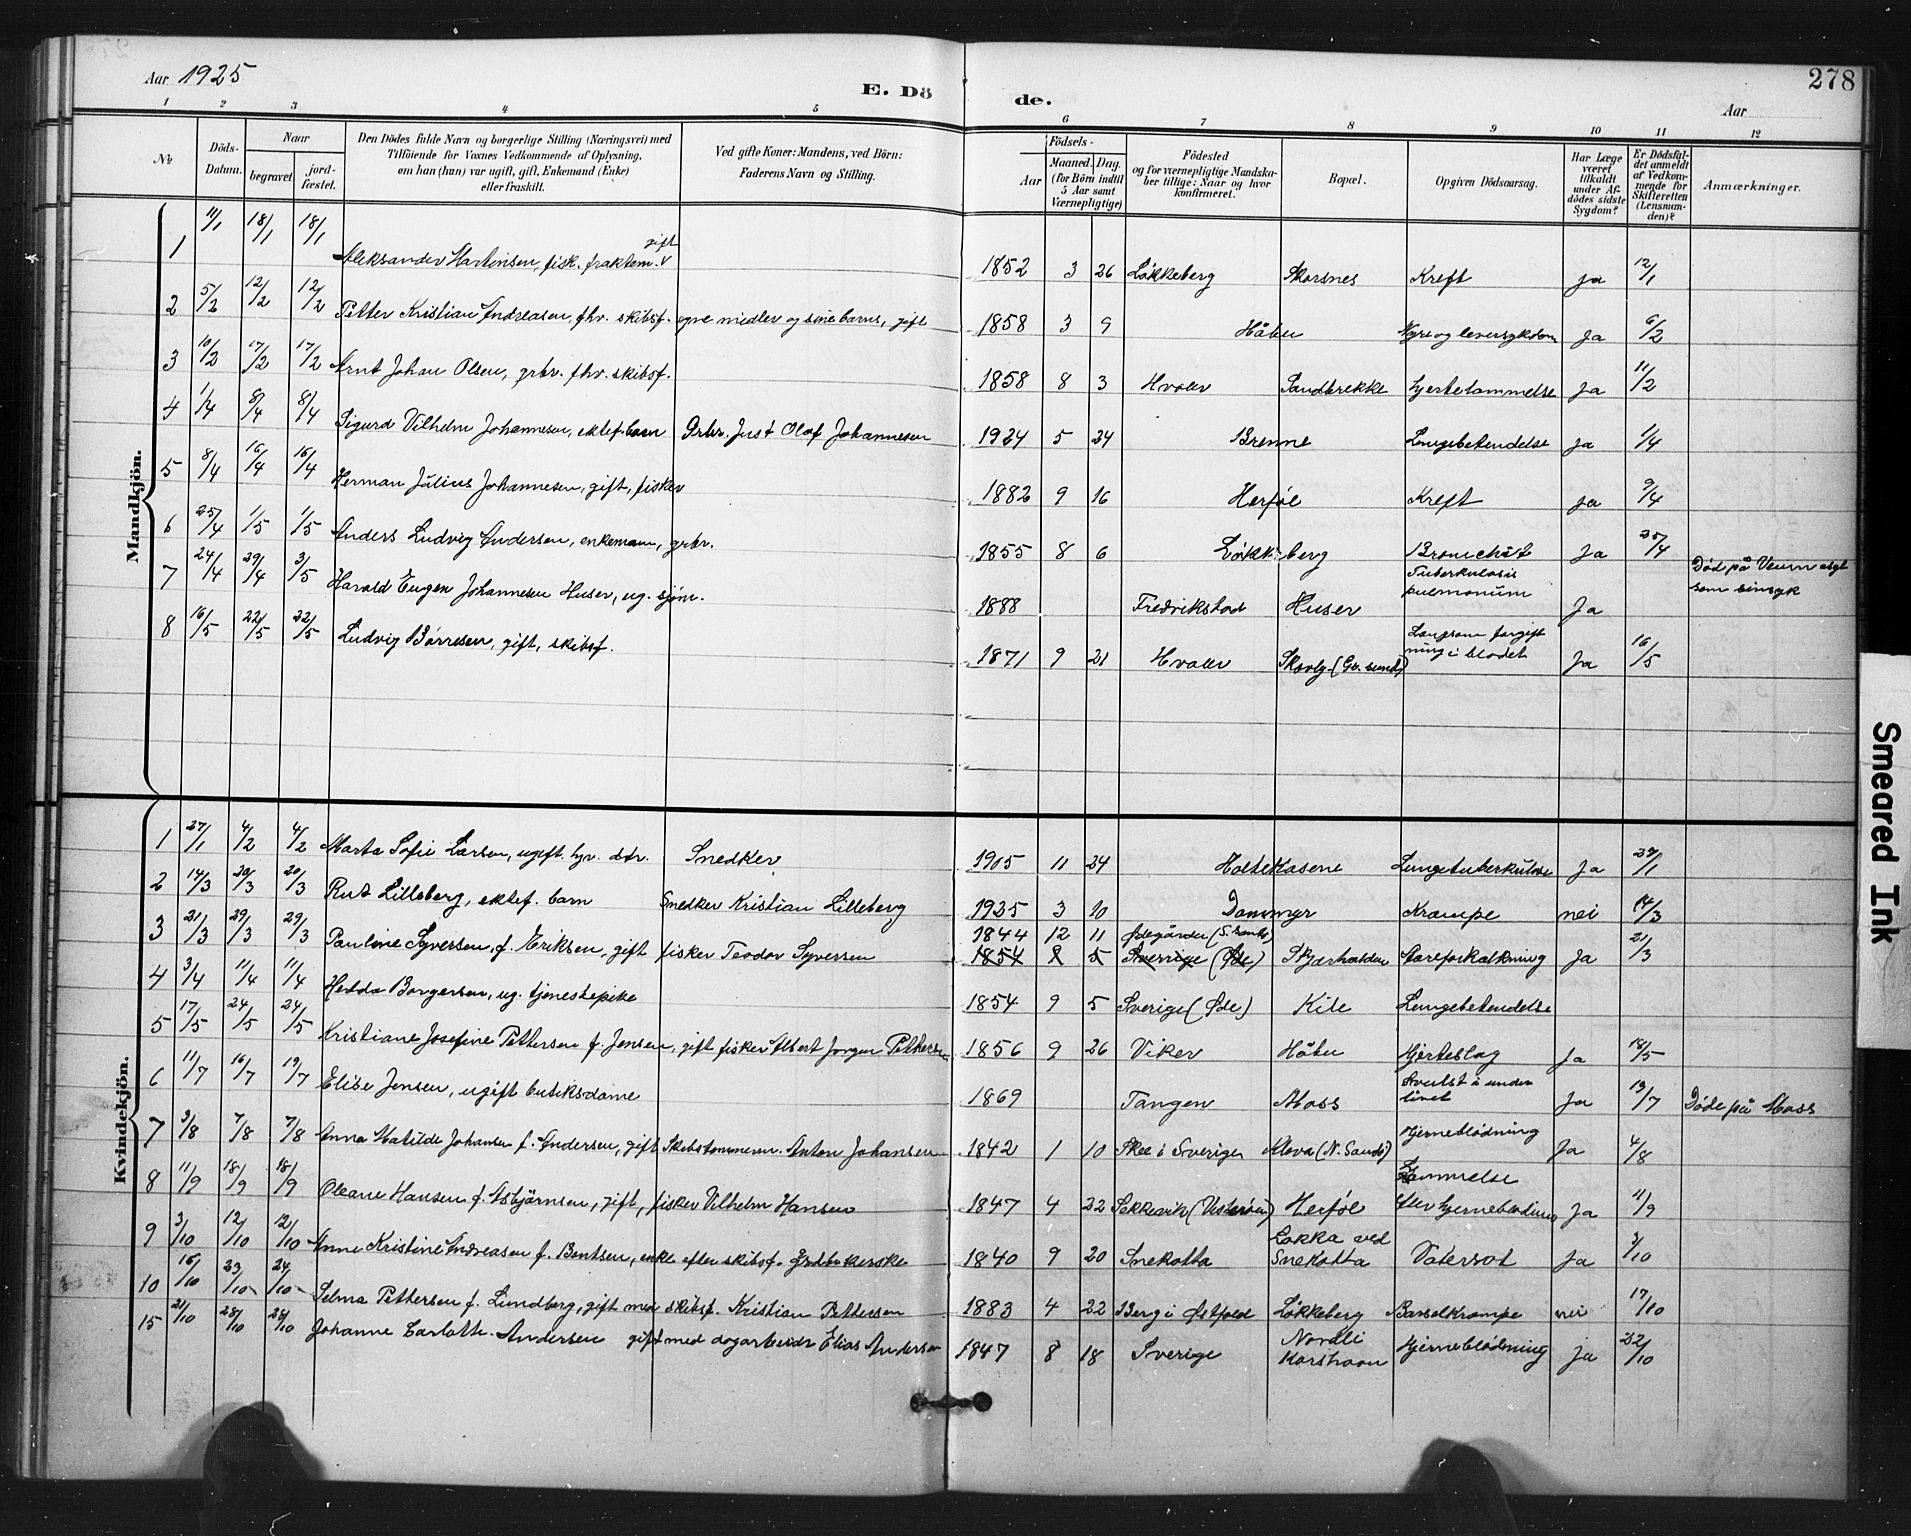 Aar 1925
E. Dö de.
278
Aar
1 2 3 4 5 6 7 8 9 10 11 12
No
Döds-Datum.
Naar
begravet
jord-fæstet.
Den Dödes fulde Navn og borgerlige Stilling (Næringsvei) med
Tilföiende for Voxnes Vedkommende af Oplysning,
om han (hun) var ugift, gift, Enkemand (Enke)
eller fraskilt.
Ved gifte Koner: Mandens, ved Börn:
Faderens Navn og Stilling.
Födsels-
Aar
Maaned. Dag.
(for Börn indtil
5 Aar samt
Værnepligtige)
Födested
og for værnepligtige Mandska-
ber tillige: Naar og hvor
konfirmeret.
Bopæl.
Opgiven Dödsaarsag.
Har Læge
været
tilkaldt
under Af-
dödes sidste
Sygdom?
Er Dödsfal-
det anmeldt
af Vedkom-
mende for
Skifteretten
(Lensman-
den)?
Anmærkninger.
Mandkjön.
1 11/1 18/1 18/1 Aleksander Martinsen, fisk. fraktem. gift 1852 3 26 Løkkeberg Skarsnes Kreft ja 12/1
2 5/2 12/2 12/2 Petter Kristian Andreasen, fhv. skibsf. egne midler og sine barns, gift 1858 3 9 Håbu Nyre og leversykdom Ja 6/2
3 10/2 17/2 17/2 Arnt Johan Olsen, grbr. fhv. skibsf. 1858 8 3 Hvaler Sandbrekke hjertelammelse Ja 11/2
4 1/4 8/4 8/4 Sigurd Vilhelm Johannesen, ektef. barn Grbr. Just Olaf Johannesen 1924 5 24 Brenne Lungebetendelse ja 1/4
5 8/4 16/4 16/4 Herman Julius Johannesen, gift, fisker 1882 9 16 Herføl Kreft ja 9/4
6 25/4 1/5 1/5 Anders Ludvig Andersen, enkemann, grbr. 1855 8 6 Løkkeberg Bronchit Ja 25/4
7 24/4 29/4 3/5 Harald Eugen Johannesen Huser, ug. sjøm. 1888 Fredrikstad Huser Tuberkulosis pulmonum Ja Død på Veum asyl som sinsyk
8 16/5 22/5 22/5 Ludvig Børresen, gift, skibsf. 1871 9 21 Hvaler Skovly (Gr. sund) Langsom forgiftning i blodet Ja 16/5
Kvindekjön.
1 27/1 4/2 4/2 Marta Sofie Larsen, ugift hjv. dtr. Snedker 1905 11 24 Holtekasene Lungetuberkulose Ja 29/1
2 14/3 20/3 20/3 Rut Lilleberg, ektef. barn Snedker Kristian Lilleberg 1925 3 10 Dammyr Krampe nei 14/3
3 21/3 29/3 29/3 Pauline Syversen, f. Eriksen, gift fisker Teodor Syversen 1844 12 11 Ødegården
1854 9 5 Sverrige (Øde) Skjærhalden Aareforkalkning Ja 21/3
4 3/4 11/4 11/4 Hedda Borgersen, ug. tjenestepike 1854 9 5 Sverige (Øde) Kile Lungebetendelse
5 17/5 24/5 24/5 Kristiane Josefine Pettersen f. Jensen, gift fisker Albert Jørgen Pettersen 1856 9 26 Viker Håbu Hjerteslag Ja 18/5
6 11/7 16/7 19/7 Elise Jensen, ugift butiksdame 1869 Tangen Moss Svulst i underlivet Ja 13/7 Døde på Moss
7 3/8 7/8 7/8 Anna Matilde Johansen f. Andersen, gift Skibstømmerm. Anton Johansen 1842 1 10 Skee i Sverige Kleva (N. Sandø) Hjerneblødning Ja 4/8
8 11/9 18/9 18/9 Oleane Hansen f. Asbjørnsen, gift, fisker Vilhelm Hansen 1847 4 22 Sekkevik (Vesterøen) Herføl Lammelse efter hjerneblødning Ja 11/9
9 3/10 12/10 12/10 Anne Kristine Andreasen f. Bentsen, enke efter skibsf. 1840 9 20 Snekotta Løkka ved Snekotta Vatersot Ja 3/10
10 16/10 23/10 24/10 Selma Pettersen f. Lundberg, gift med skibsf. Kristian Pettersen 1883 4 22 Berg i Østfold Løkkeberg Barselkrampe nei 17/10
15 21/10 28/10 28/10 Johanne Carlotte Andersen gift med dagarbeider Elias Andersen 1847 8 18 Sverige Nordli Korshavn Hjerneblødning ja 22/10
Smeared Ink